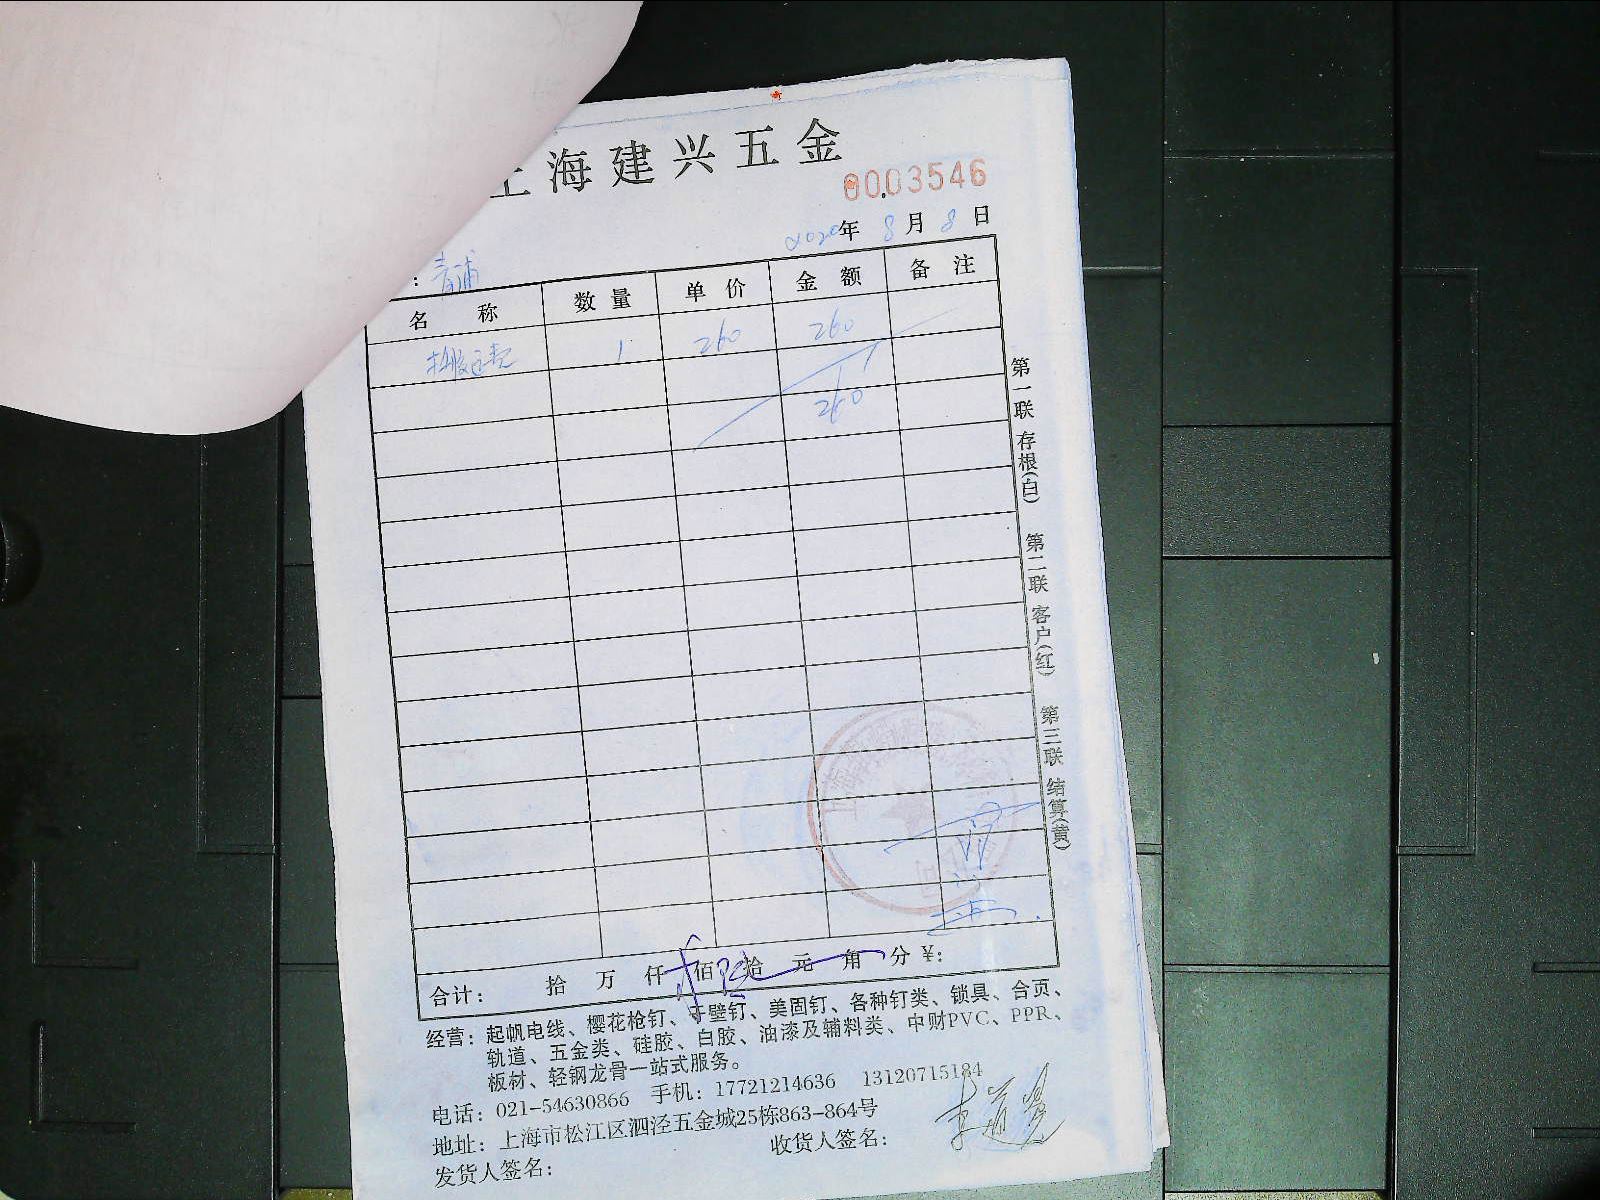 上海建兴五金
0003546
2020年 8月 8日
：青浦
名 称 数 量 单 价 金 额 备 注
搬运费 1 260 260
260
第一联 存根(白) 第二联 客户(红) 第三联 结算(黄)
合计： 拾 万 仟 佰 拾 元 角 分 ¥：
经营：起帆电线、樱花枪钉、干壁钉、美固钉、各种钉类、锁具、合页、
轨道、五金类、硅胶、白胶、油漆及辅料类、中财PVC、PPR、
板材、轻钢龙骨一站式服务。
电话：021-54630866 手机：17721214636 13120715184
地址：上海市松江区泗泾五金城25栋863-864号
发货人签名： 收货人签名：